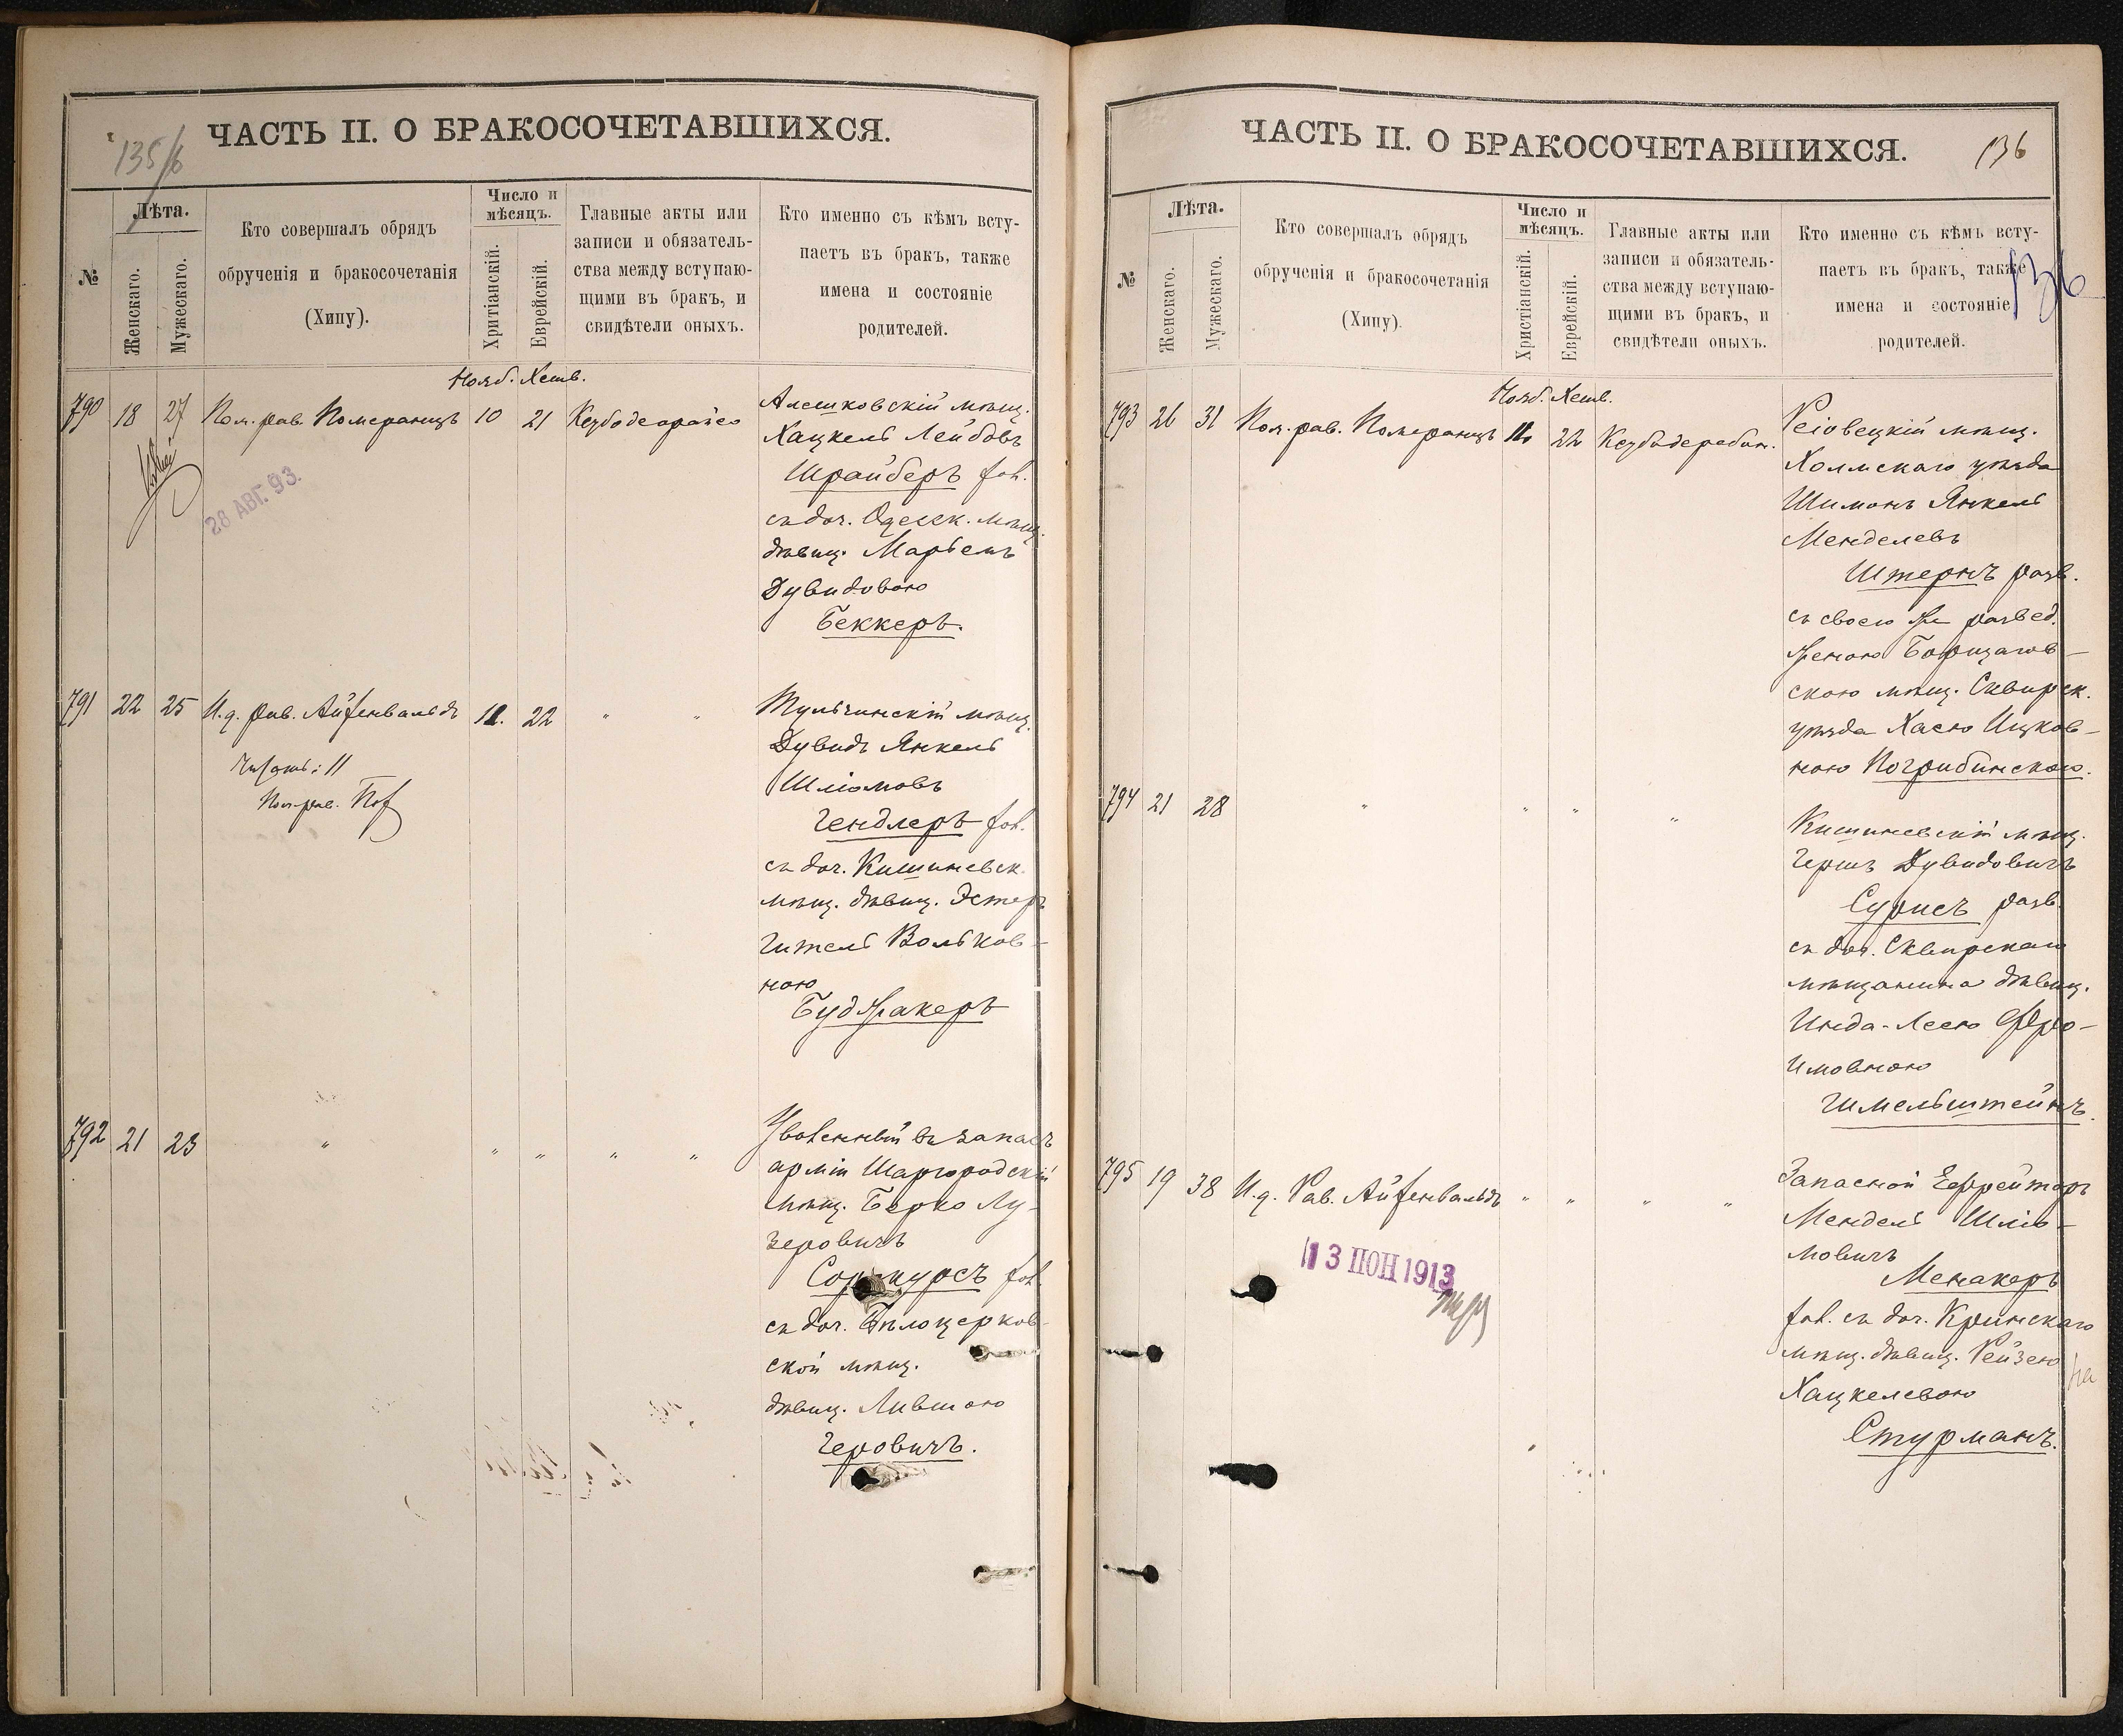 135/6
ЧАСТЬ II. О БРАКОСОЧЕТАВШИХСЯ.
№
Лѣта.
Женскаго.
Мужескаго.
Кто совершалъ обрядъ
обрученія и бракосочетанія
(Хипу).
Число и
мѣсяцъ.
Хритіанскій.
Еврейскій.
Главные акты или
записи и обязатель-
ства между вступаю-
щими въ бракъ, и
свидѣтели оныхъ.
Кто именно съ кѣмъ всту-
паетъ въ бракъ, также
имена и состояніе
родителей.
Нояб. Хешв.
790 18 27 Пом. рав. Померанцъ 10 21
28 АВГ. 93.
Алешковскій мѣщ.
Хацкель Лейбовъ
Шрайберъ хол.
съ доч. Одесск. мѣщ.
дѣвиц. Марьемъ
Дувидовою
Беккеръ.
791 22 25 И.д. рав. Айзенвальдъ 11. 22 " "
Читать: 11
Пом. рав.
Тульчинскій мѣщ.
Дувидъ Янкель
Шлiомовъ
Гендлеръ хол.
съ доч. Кишиневск.
мѣщ. дѣвиц. Эстеръ
Гитель Вольков-
ною
Буджакеръ
792 21 23 " " " " "
Уволенный въ запасъ
арміи Шаргородскій
мѣщ. Берко Лу-
зеровичъ
хол.
съ доч. Бѣлоцерков-
ской мѣщ.
дѣвиц. Лившою
Геровичъ.
ЧАСТЬ II. О БРАКОСОЧЕТАВШИХСЯ.
136
№
Лѣта.
Женскаго.
Мужескаго.
Кто совершалъ обрядъ
обрученія и бракосочетанія
(Хипу).
Число и
мѣсяцъ.
Христіанскій.
Еврейскій.
Главные акты или
записи и обязатель-
ства между вступаю-
щими въ бракъ, и
свидѣтели оныхъ.
Кто именно съ кѣмъ всту-
паетъ въ бракъ, также
имена и состояніе
родителей.
136
Нояб. Хешв.
793 26 31 Пом. рав. Померанцъ 11 22
Реіовецкій мѣщ.
Холмскаго уѣзда
Шимонъ Янкель
Менделевъ
Штернъ разв.
съ своею же развед.
женою
скою мѣщ. Сквирск.
уѣзда Хасею Ицков-
ною Погребинскою.
794 21 28 " " " "
Кишиневскій мѣщ.
Гершъ Дувидовичъ
Сурисъ разв.
съ доч. Сквирскаго
мѣщанина дѣвиц.
Инда-Леею Фро-
имовною
Гимельштейнъ.
795 19 38 И.д. Рав. Айзенвальдъ " " " "
13 ІЮН 1913
Запасной Ефрейторъ
Мендель Шліо-
мовичъ
Менакеръ
хол. съ доч. Кринскаго
мѣщ. дѣвиц. Рейзею
Хацкелевою
на
Стурманъ.